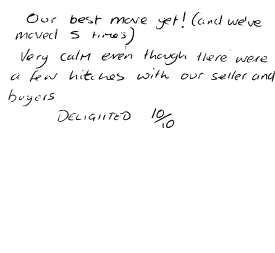 Our best move yet! (and we've
moved 5 times)
Very calm even though there were
a few hitches with our seller and
buyers
DELIGHTED 10/10